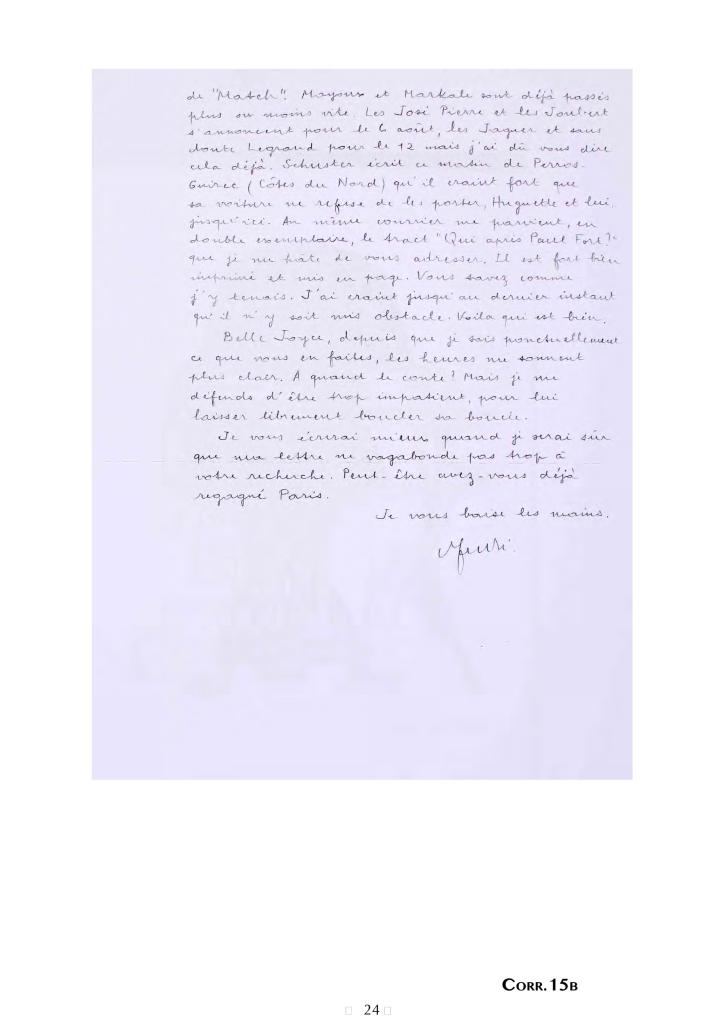 de "Match". Mayoux et Markale sont déjà passés
plus ou moins vite. Les José Pierre et les Joubert
s'annoncent pour le 6 août, les Jaguer et sans
doute Legrand pour le 12 mais j'ai dû vous dire
cela déjà. Schuster écrit ce matin de Perros-
Guirec (Côtes du Nord) qu'il craint fort que
sa voiture ne refuse de les porter, Huguette et lui,
jusqu'ici. Au même courrier me parvient, en
double exemplaire, le tract "Qui après Paul Fort?"
que je me hâte de vous adresser. Il est fort bien
imprimé et mis en page. Vous savez comme
j'y tenais. J'ai craint jusqu'au dernier instant
qu'il n'y soit mis obstacle. Voilà qui est bien.
Belle Joyce, depuis que je sais ponctuellement
ce que vous en faites, les heures me sonnent
plus clair. A quand le conte? Mais je me
défends d'être trop impatient, pour lui
laisser librement boucler sa boucle.
Je vous écrirai mieux quand je serai sûr
que ma lettre ne vagabonde pas trop à
votre recherche. Peut-être avez-vous déjà
regagné Paris.
Je vous baise les mains.
CORR.15B
24